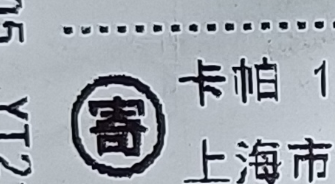 寄
卡帕 1
上海市
YT2